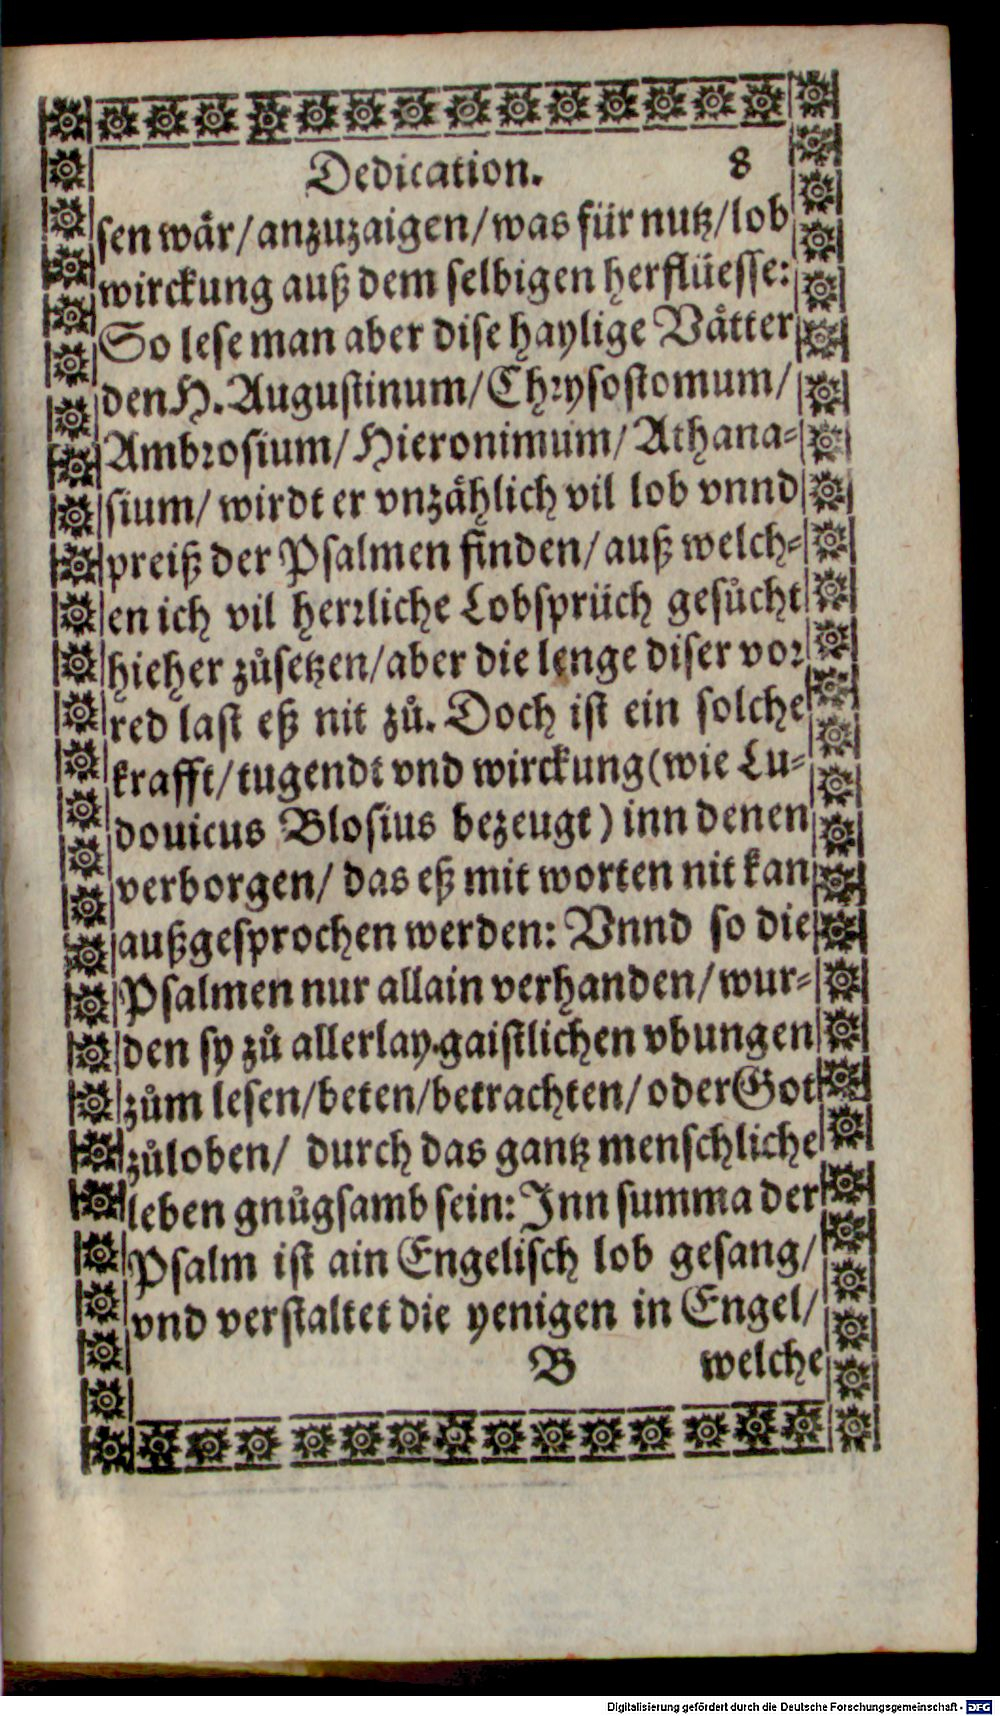 Dedication. 8
sen wår/anzuzaigen/was für nutz/lob
wirckung auß dem selbigen herflüesse:
So lese man aber dise haylige Våtter
den H. Augustinum/Chrysostomum/
Ambrosium/Hieronimum/Athana=
sium/ wirdt er vnzåhlich vil lob vnnd
preiß der Psalmen finden/auß welch=
en ich vil herrliche Lobsprüch gesůcht
hieher zůsetzen/aber die lenge diser vor
red last eß nit zů. Doch ist ein solche
krafft/tugendt vnd wirckung(wie Lu=
douicus Blosius bezeugt) inn denen
verborgen/ das eß mit worten nit kan
außgesprochen werden: Vnnd so die
Psalmen nur allain verhanden/wur=
den sy zů allerlay gaistlichen vbungen
zům lesen/beten/betrachten/oder Got
zůloben/ durch das gantz menschliche
leben gnůgsamb sein: Inn summa der
Psalm ist ain Engelisch lob gesang/
vnd verstaltet die yenigen in Engel/
B welche
Digitalisierung gefördert durch die Deutsche Forschungsgemeinschaft - DFG